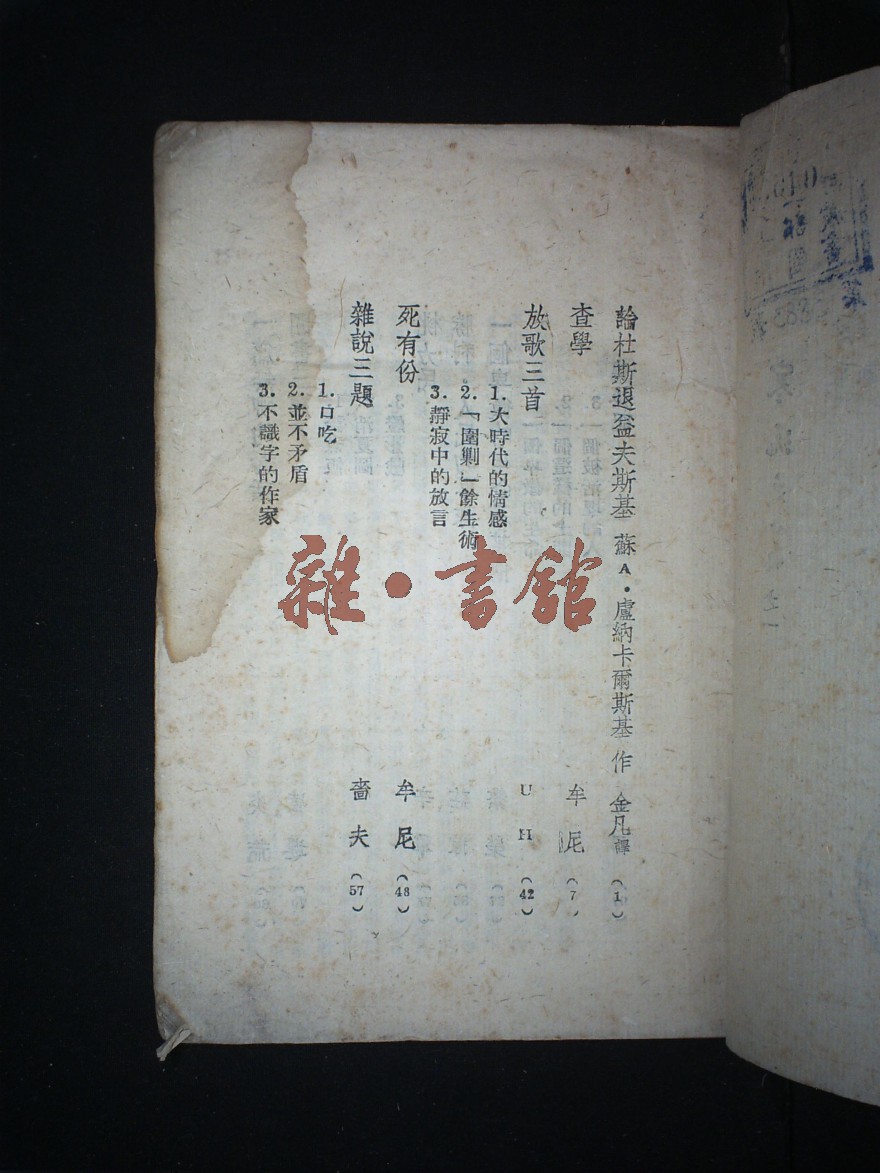 論杜斯退益夫斯基 蘇 A・盧納卡爾斯基 作 金凡譯 (1)
查學 牟尼 (7)
放歌三首 U H (42)
1. 大時代的情感
2. 「圍剿」餘生術
3. 靜寂中的放言
死有份 牟尼 (48)
雜說三題 嗇夫 (57)
1. 口吃
2. 並不矛盾
3. 不識字的作家
雜・書館